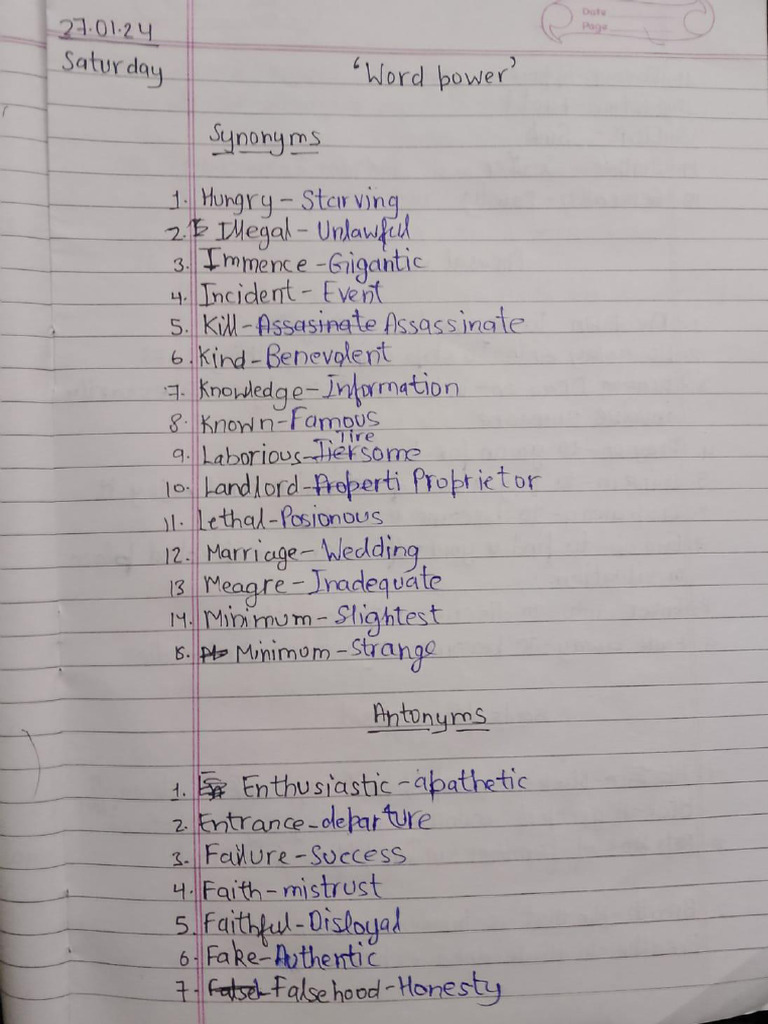 Date
Page
27.01.24
Saturday
'Word power'
Synonyms
1. Hungry - Starving
2. Illegal - Unlawful
3. Immence - Gigantic
4. Incident - Event
5. Kill - Assasinate Assassinate
6. Kind - Benevolent
7. Knowledge - Information
8. Known - Famous
9. Laborious - Tiresome
10. Landlord - Properti Proprietor
11. Lethal - Posionous
12. Marriage - Wedding
13 Meagre - Inadequate
14. Minimum - Slightest
15. Minimom - Strange
Antonyms
1. Enthusiastic - apathetic
2. Entrance - departure
3. Failure - Success
4. Faith - mistrust
5. Faithful - Disloyal
6. Fake - Authentic
7. Falsehood - Honesty